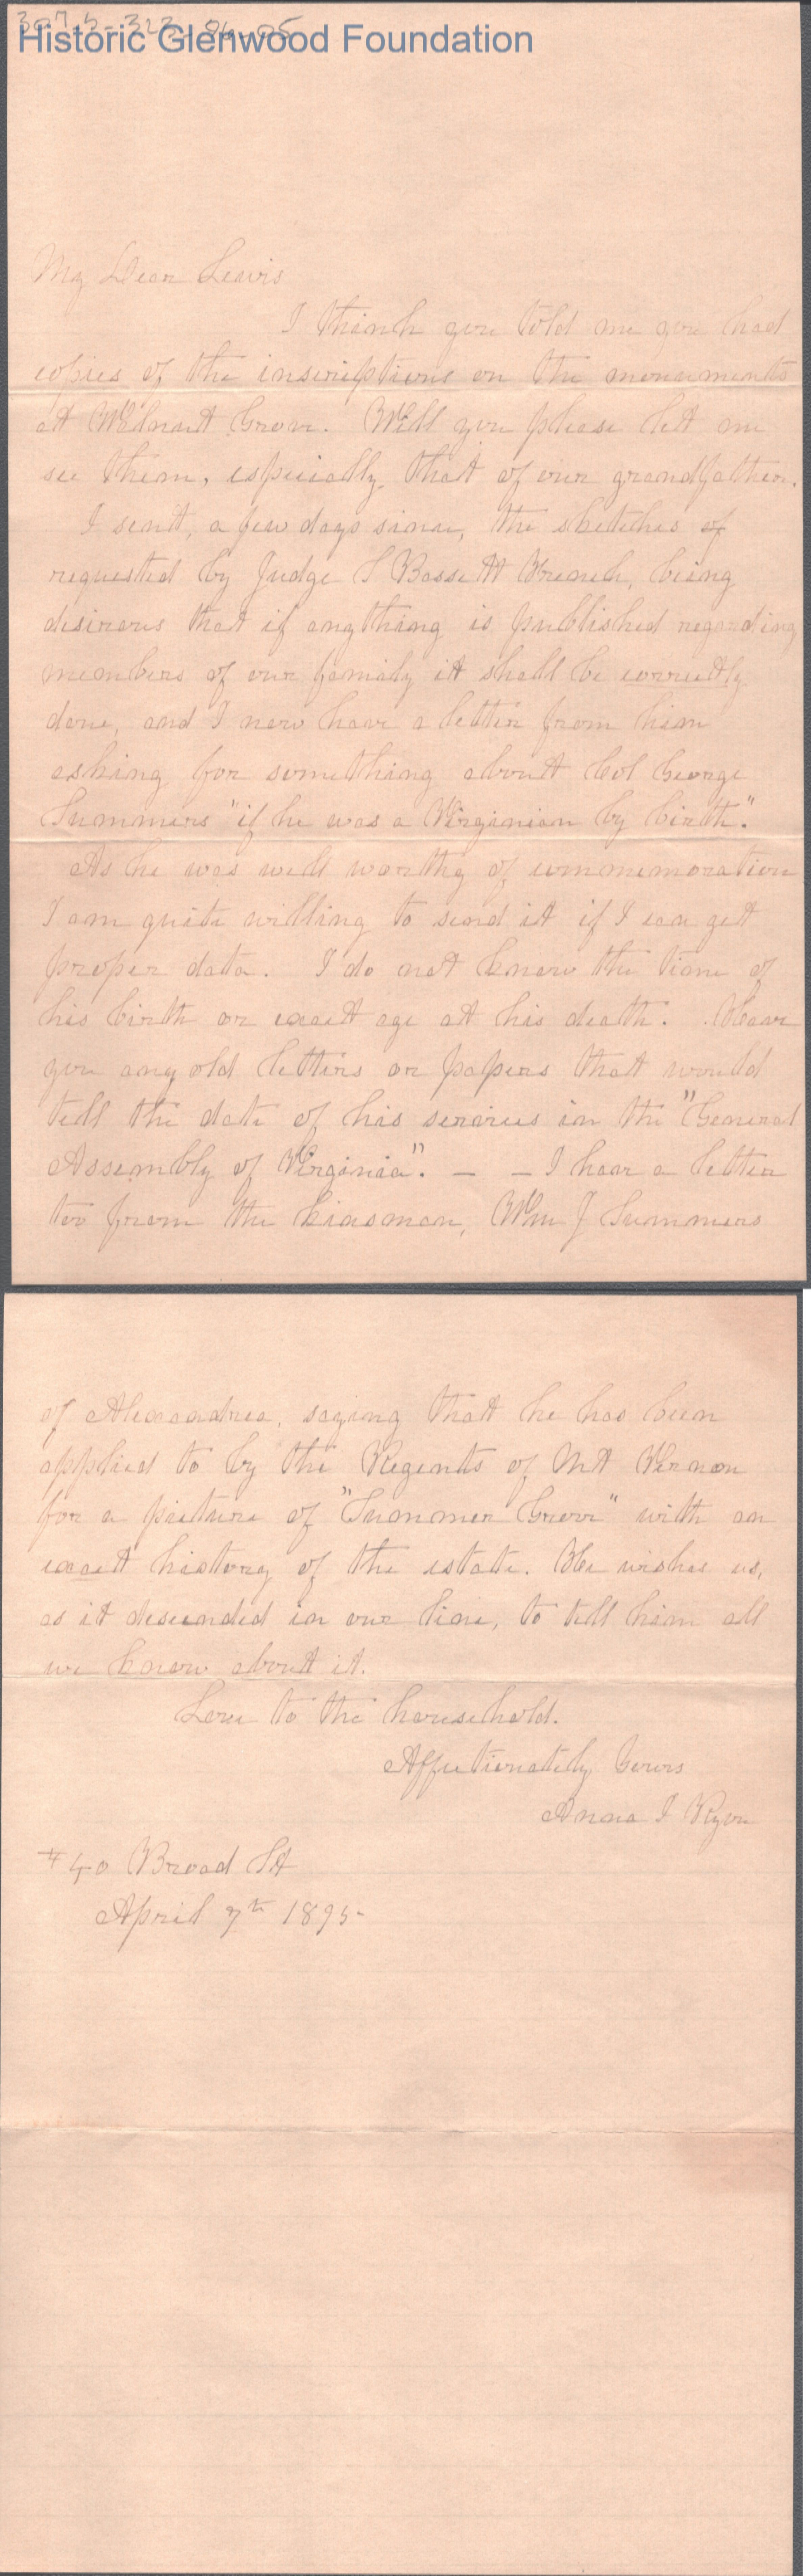 307.5-323-86-05
Historic Glenwood Foundation
My Dear Lewis
I think you told me you had
copies of the inscriptions on the monuments
at Walnut Grove. Will you please let me
see them, especially that of our grandfather.
I sent, a few days since, the sketches of
requested by Judge S Bassett French, being
desirous that if anything is published regarding
members of our family it shall be correctly
done, and I now have a letter from him
asking for something about Col George
Summers "if he was a Virginian by birth."
As he was well worthy of commemoration
I am quite willing to send it if I can get
proper data. I do not know the time of
his birth or exact age at his death. Have
you any old letters or papers that would
tell the date of his services in the "General
Assembly of Virginia". — — I have a letter
too from the kinsman, Wm J Summers
of Alexandria, saying that he has been
applied to by the Regents of Mt Vernon
for a picture of "Summer Grove" with an
exact history of the estate. He wishes us,
as it descended in our line, to tell him all
we know about it.
Love to the household.
Affectionately Yours
Anna I
#40 Broad St
April 7th 1895-